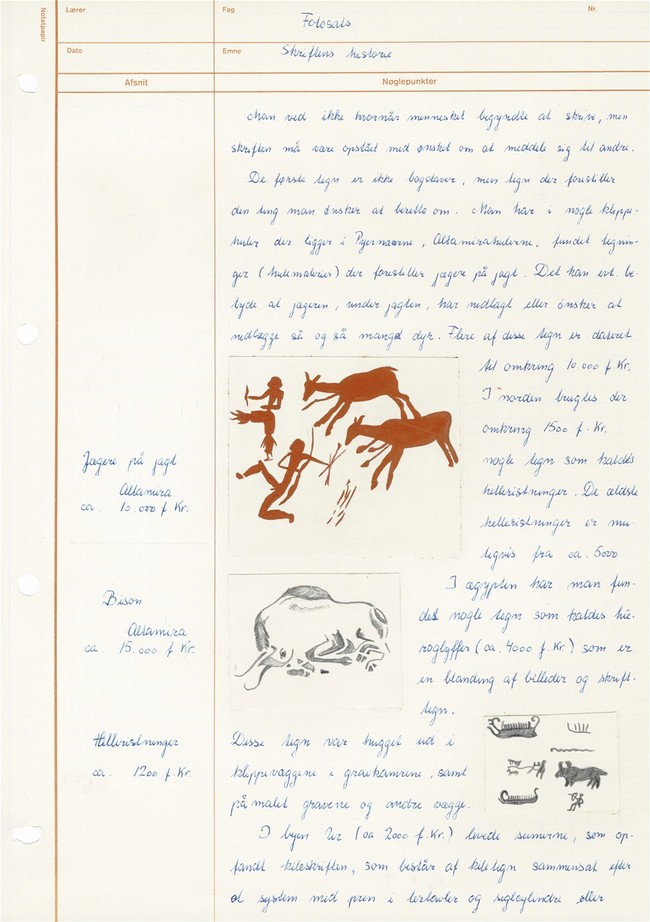 Notatpapir
Lærer
Fag
Fotosats
Nr.
Dato
Emne
Skriftens historie
Afsnit
Nøglepunkter
Man ved ikke hvornår mennesket begyndte at skrive, men
skriften må være opstået med ønsket om at meddele sig til andre.
De første tegn er ikke bogstaver, men tegn der forestiller
den ting man ønsker at berette om. Man har i nogle klippe-
huler der ligger i Pyernærne, Altamirahulerne, fundet tegnin-
ger (hulemalerier) der forestiller jægere på jagt. Det kan evt. be-
tyde at jægeren, under jagten, har nedlagt eller ønsker at
nedlægge så og så mange dyr. Flere af disse tegn er dateret
til omkring 10.000 f. Kr.
I norden brugtes der
omkring 1500 f. Kr.
nogle tegn som kaldes
helleristninger. De ældste
helleristninger er mu-
ligvis fra ca. 5000
Jægere på jagt
Altamira
ca. 10.000 f. Kr.
I ægypten har man fun-
det nogle tegn som kaldes hie-
roglyffer (ca. 4000 f. Kr.) som er
en blanding af billeder og skrift-
tegn.
Bison
Altamira
ca. 15.000 f. Kr.
Disse tegn var hugget ud i
klippevæggene i gravkamrene, samt
på malet gravene og andre vægge.
Helleristninger
ca. 1200 f. Kr.
I byen Ur (ca 2000 f. Kr.) levede sumerne, som op-
fandt kileskriften, som består af kiletegn sammensat efter
et system med pren i lertavler og seglcylindre eller